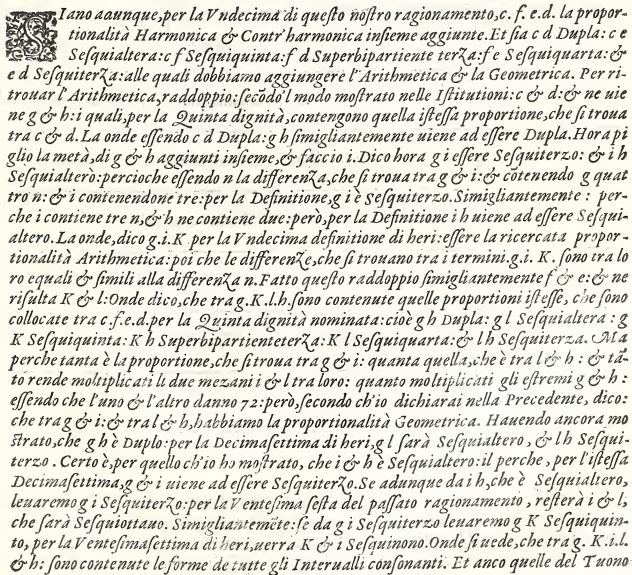 SIano adunque, per la Vndecima di queſto noſtro ragionamento, c. f. e. d. la propor-
tionalità Harmonica & Contr'harmonica inſieme aggiunte. Et ſia c d Dupla: c e
Seſquialtera: c f Seſquiquinta: f d Superbipartiente terza: f e Seſquiquarta: &
e d Seſquiterza: alle quali dobbiamo aggiungere l'Arithmetica & la Geometrica. Per ri-
trouar l'Arithmetica, raddoppio: ſecōdo'l modo moſtrato nelle Iſtitutioni: c & d: & ne uie
ne g & h: i quali, per la Quinta dignità, contengono quella iſteſſa proportione, che ſi troua
tra c & d. La onde eſſendo c d Dupla: g h ſimigliantemente uiene ad eſſere Dupla. Hora pi
glio la metà, di g & h aggiunti inſieme, & faccio i. Dico hora g i eſſere Seſquiterzo: & i h
Seſquialtero: percioche eſſendo n la differenza, che ſi troua tra g & i: & cōtenendo g quat
tro n: & i contenendone tre: per la Definitione, g i è Seſquiterzo. Simigliantemente: per-
che i contiene tre n, & h ne contiene due: però, per la Definitione i h uiene ad eſſere Seſqui-
altero. La onde, dico g. i. K per la Vndecima definitione di heri: eſſere la ricercata propor-
tionalità Arithmetica: poi che le differenze, che ſi trouano tra i termini. g. i. K. ſono tra lo
ro equali & ſimili alla differenza n. Fatto queſto raddoppio ſimigliantemente f & e: & ne
riſulta K & l: Onde dico, che tra g. K. l. h. ſono contenute quelle proportioni iſteſſe, che ſono
collocate tra c. f. e. d. per la Quinta dignità nominata: cioè g h Dupla: g l Seſquialtera: g
K Seſquiquinta: K h Superbipartienteterza: K l Seſquiquarta: & l h Seſquiterza. Ma
perche tanta è la proportione, che ſi troua tra g & i: quanta quella, che è tra l & h: & tā-
to rende moltiplicati li due mezani i & l tra loro: quanto moltiplicati gli eſtremi g & h:
eſſendo che l'uno & l'altro danno 72: però, ſecondo ch'io dichiarai nella Precedente, dico:
che tra g & i: & tra l & h, habbiamo la proportionalità Geometrica. Hauendo ancora mo
ſtrato, che g h è Duplo: per la Decimaſettima di heri, g l ſarà Seſquialtero, & l h Seſqui-
terzo. Certo è, per quello ch'io ho moſtrato, che i & h è Seſquialtero: il perche, per l'iſteſſa
Decimaſettima, g & i uiene ad eſſere Seſquiterzo. Se adunque da i h, che è Seſquialtero,
leuaremo g i Seſquiterzo: per la Venteſima ſeſta del paſſato ragionamento, reſterà i & l;
che ſarà Seſquiottauo. Simigliantemēte: ſe da g i Seſquiterzo leuaremo g K Seſquiquin-
to, per la Venteſimaſettima di heri, uerra K & i Seſquinono. Onde ſi uede, che tra g. K. i. l.
& h: ſono contenute le forme de tutte gli Interualli conſonanti. Et anco quelle del Tuono